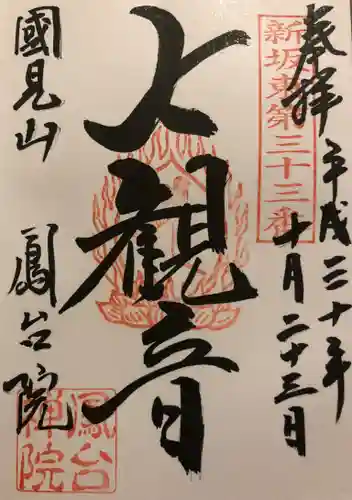 奉拝
平成三十年
十月二十三日
新坂東第三十三番
大観音
國見山
鳳台院
鳳台
禅院